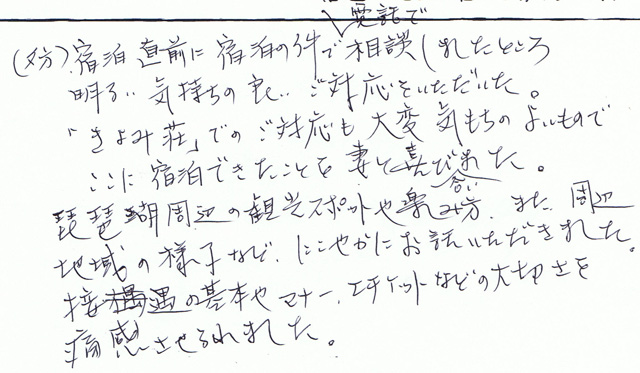 電話で
(夕方)宿泊直前に宿泊の件で相談しましたところ
明るい気持ちの良いご対応をいただいた。
「きよみ荘」でのご対応も大変気もちのよいもので
ここに宿泊できたことを妻と喜び合いました。
琵琶湖周辺の観光スポットや楽しみ方、また、周辺
地域の様子など、にこやかにお話いただきました。
接遇の基本やマナー、エチケットなどの大切さを
痛感させられました。